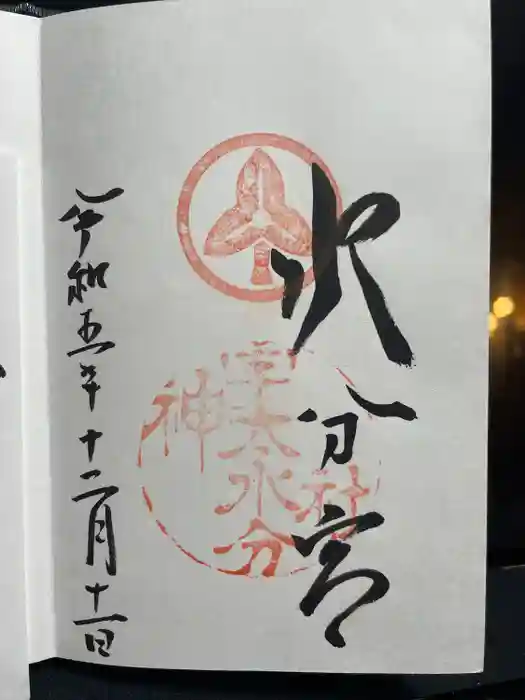 水分宮
宇太水分
神社
令和五年十二月十一日